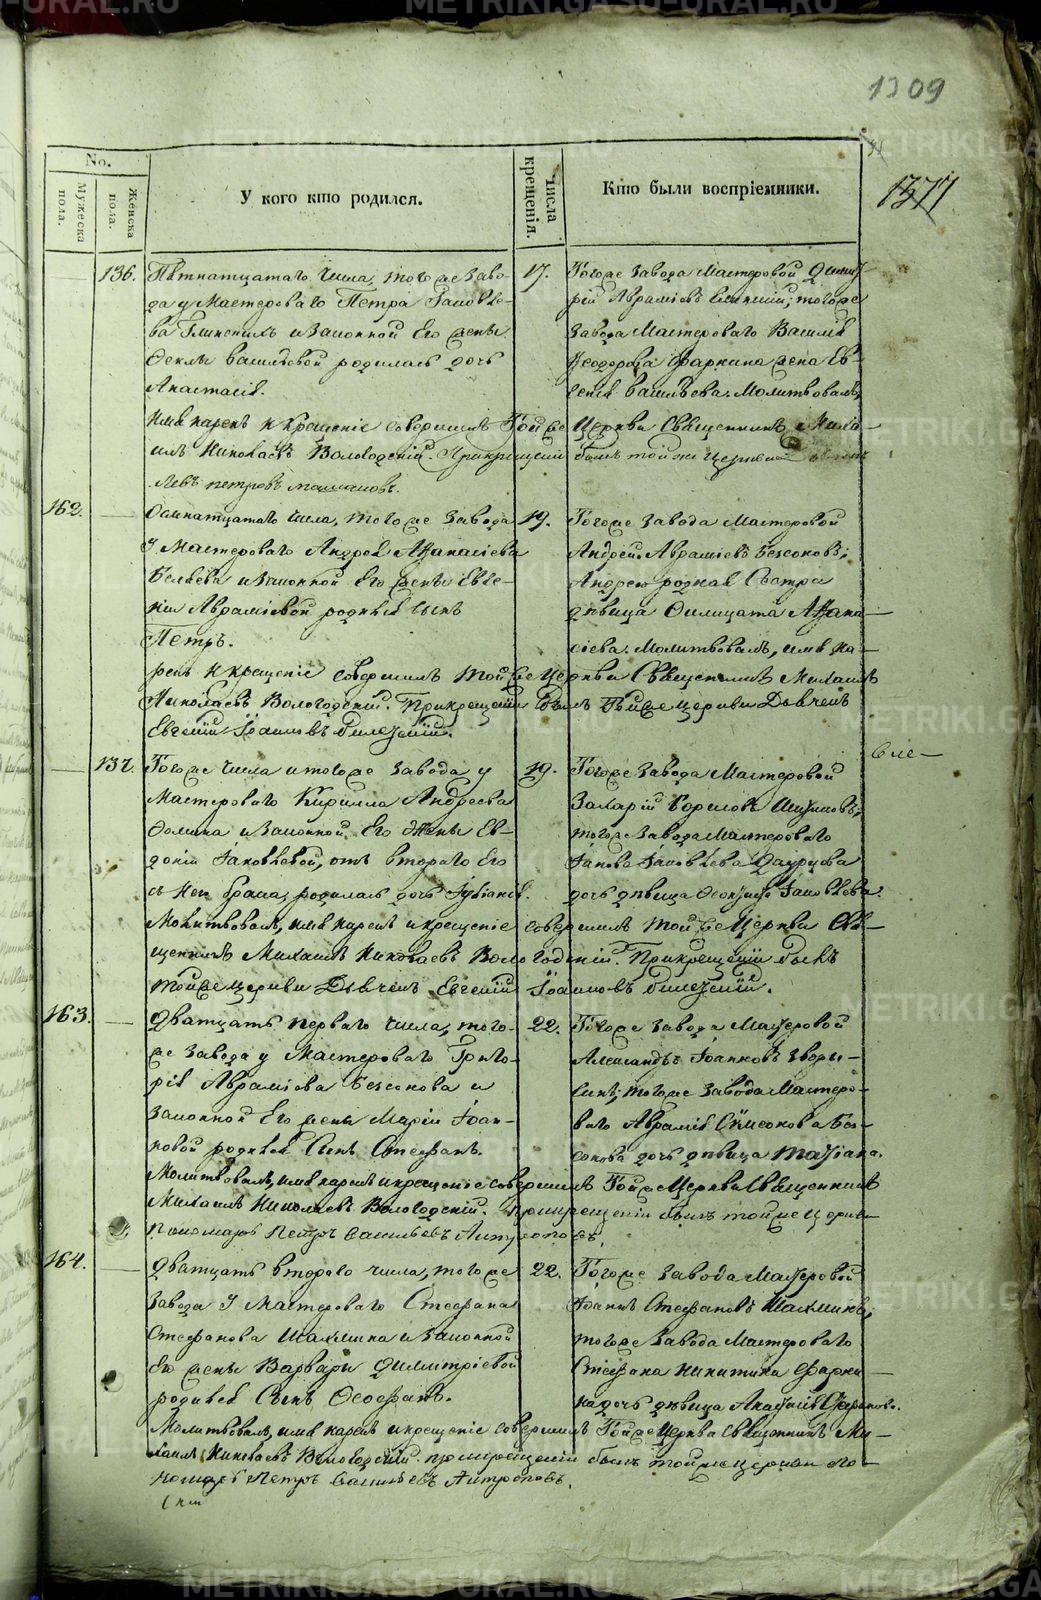 1309
1377
No.
Мужеска пола.
Женска пола.
У кого кто родился.
Числа крещенія.
Кто были воспріемники.
136. Пятнатцатаго числа, тогоже заво-
да у Мастероваго Петра Іаковле-
ва и законной его жены
Феклы Васильевой родилась дочь
Анастасія.
17.
Тогоже завода Мастеровой Димит-
рій Авраміевъ тогоже
завода Мастероваго Василія
Феодорова Фаркина жена Ев-
генія Васильева. Молитвовалъ,
имя нарекъ и крещеніе совершилъ Тойже Церкви Священникъ Миха-
илъ Николаевъ Вологодскій. При крещеніи былъ тойже церкви
Левъ Петровъ
162.
Осмнатцатаго числа, тогоже завода
У Мастероваго Андрея Афанасіева
Беляева и законной его жены Евге-
ніи Авраміевой родился сынъ
Петръ.
19.
Тогоже завода Мастеровой
Андрей Авраміевъ Безсоновъ;
Андрею родная Сестра
дѣвица Филицата Афана-
сіева. Молитвовалъ, имя на-
рекъ и крещеніе совершилъ тойже Церкви Священникъ Михаилъ
Николаевъ Вологодскій. При крещеніи былъ Тойже церкви Дьячекъ
Евгеній Іоанновъ
137. Тогоже числа и тогоже завода у
Мастероваго Кирилла Андреева
Фомина и законной его Жены Ев-
докіи Іаковлевой, отъ втораго его
съ ней брака, родилась дочь Іуліанія.
19.
Тогоже завода Мастеровой
Захарій Борисовъ
тогоже завода Мастероваго
Іакова Іаковлева
дочь дѣвица Іаковлева.
Молитвовалъ, имя нарекъ и крещеніе совершилъ тойже Церкви Свя-
щенникъ Михаилъ Николаевъ Вологодскій. При крещеніи былъ
тойже церкви Дьячекъ Евгеній Іоанновъ
163.
Дватцать перваго числа, того-
же завода у Мастероваго Григо-
рія Авраміева Безсонова и
законной его жены Маріи Іоан-
новой родился Сынъ Стефанъ.
22.
Тогоже завода Мастеровой
Александръ Іоанновъ Зворы-
тогоже завода Мастеро-
ваго Аврамія Симеонова Без-
сонова дочь дѣвица Татіана.
Молитвовалъ, имя нарекъ и крещеніе совершилъ Тойже Церкви Священникъ
Михаилъ Николаевъ Вологодскій. При крещеніи былъ тойже церкви
Пономарь Петръ Васильевъ Антроповъ.
164.
Дватцать втораго числа, тогоже
завода У Мастероваго Стефана
Стефанова Шахмина и законной
его жены Варвары Димитріевой
родился Сынъ Феофанъ.
22.
Тогоже завода Мастеровой
Іоаннъ Стефановъ Шахминъ;
тогоже завода Мастероваго
Стефана Никитина Фарки-
на дочь дѣвица Анастасія
Молитвовалъ, имя нарекъ и крещеніе совершилъ Тойже Церкви Священникъ Ми-
хаилъ Николаевъ Вологодскій. При крещеніи былъ тойже церкви По-
номарь Петръ Васильевъ Антроповъ.
METRIKI.GASO-URAL.RU